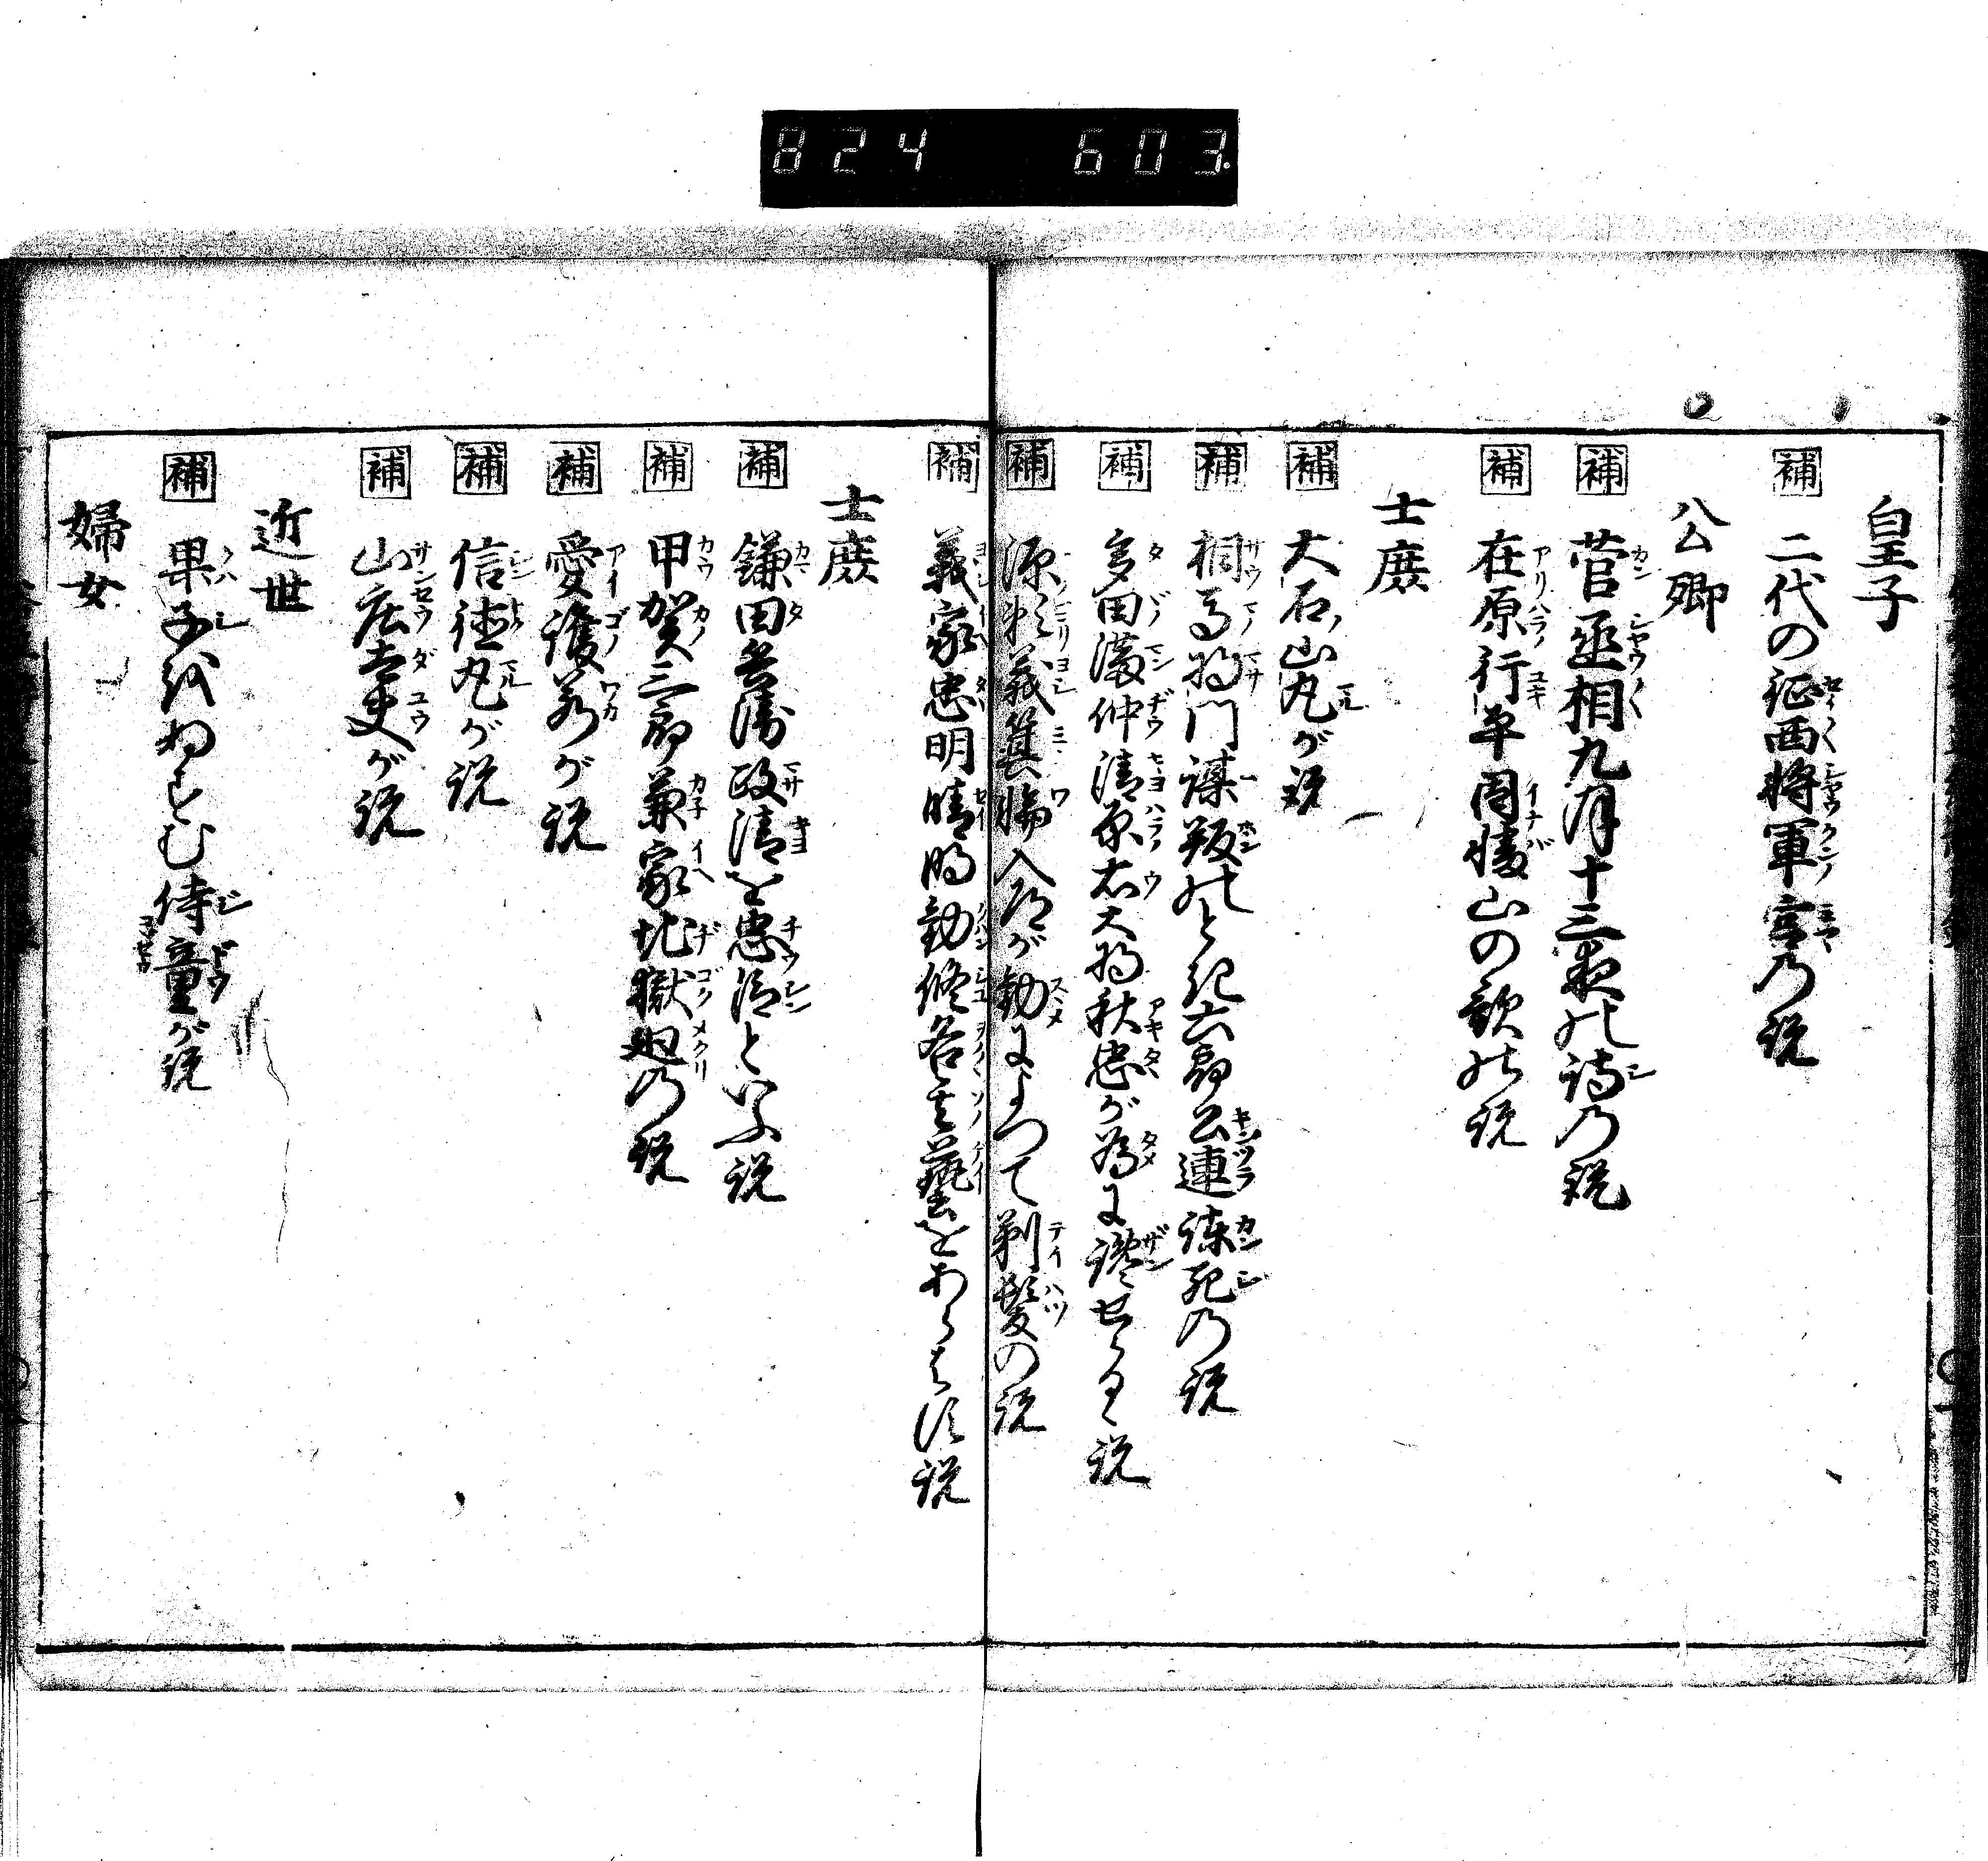 824 603
皇子
補 二代の征西将軍宮乃説
公卿
補 菅丞相九月十三夜の詩乃説
補 在原行平因幡山の歌の説
士庶
補 大石山丸が説
補 相馬将門謀叛のとき六郎公連諌死乃説
補 多田満仲清原右大将秋忠が為に讒せらるゝ説
補 源頼義箕輪入道が勧によつて剃髪の説
補 義家忠明晴明勧修各其藝をあらはす説
士庶
補 鎌田兵衛政清を忠臣といふ説
補 甲賀三郎兼家地獄廻乃説
補 愛護若が説
補 信徳丸が説
補 山庄太夫が説
近世
補 果子をぬすむ侍童が説
婦女